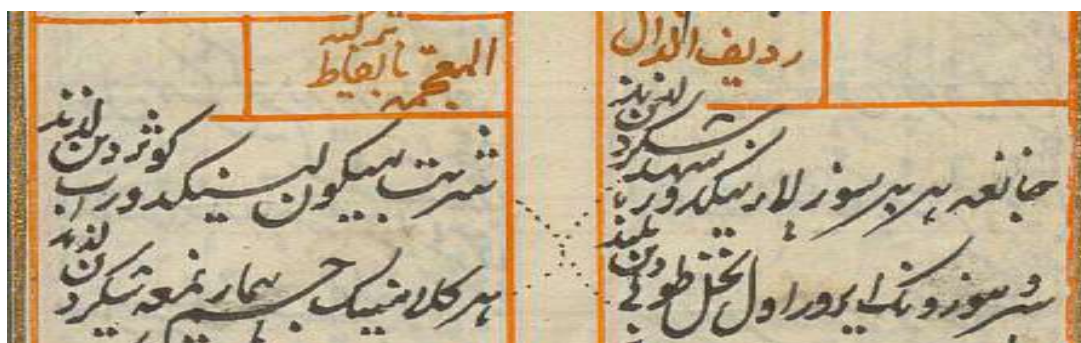 ردیف الدال
المعجمه
جانغه هر بیر سوزلارینکدور شهد شکر لذیذ
شربت بیکون لبینکدور آب کوثردین لذیذ
موزونک ایرور اول نخل طوبی دین
هر کلامینک جسم بیماریمغه شکردین لذیذ